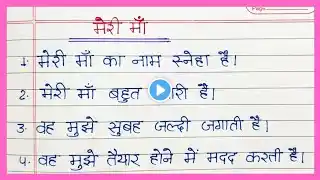 मेरी माँ
1. मेरी माँ का नाम स्नेहा है।
2. मेरी माँ बहुत है।
3. वह मुझे सुबह जल्दी जगाती है।
4. वह मुझे तैयार होने में मदद करती है।